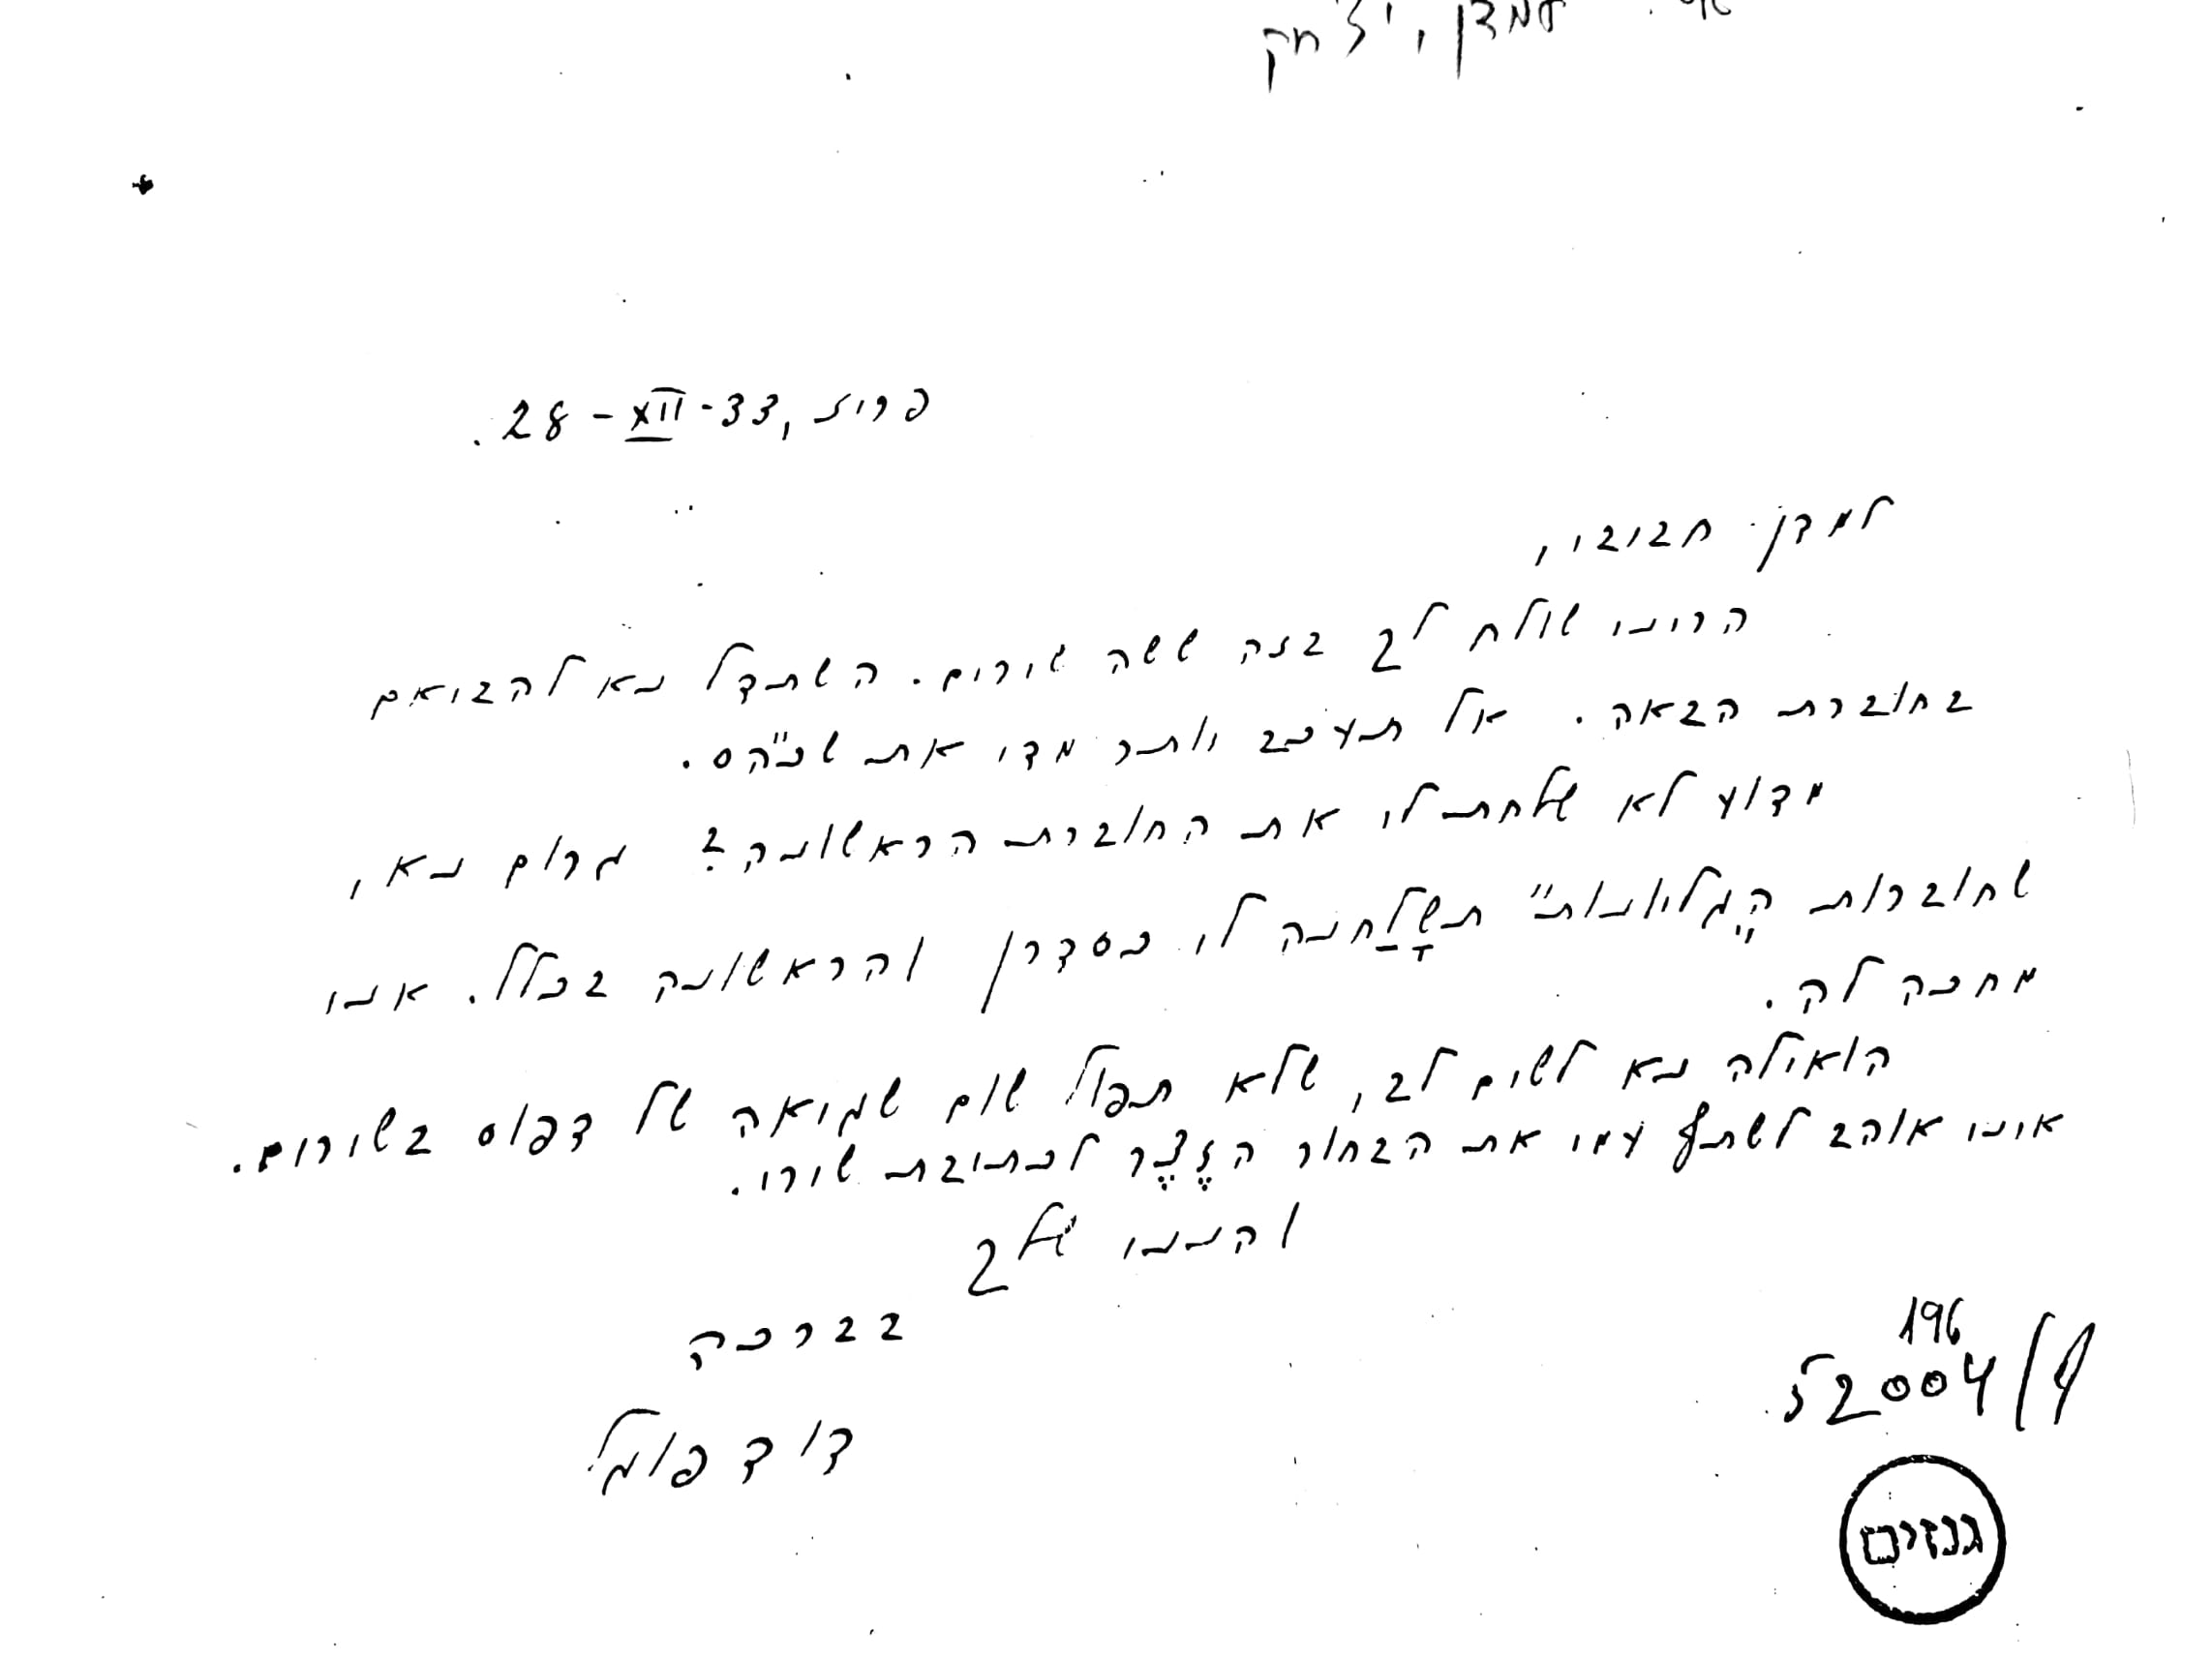 למדן, יצחק
פריז, 28-XII-33.
למדן חביבי,
הריני שולח לך בזה ששה שירים. השתדל נא להביאם
בחוברת הבאה. אל תעכב יותר מדי את שכ"הס.
מדוע לא שלחת לי את החוברת הראשונה? גרום נא,
שחוברות הֲ"גליונות" תשָלַחנה לי כסדרן והראשונה בכלל. אני
מחכה לה.
הואילה נא לשים לב, שלא תפול שום שגיאה של דפוס בשירים.
איני אוהב לשתף עמי את הבחור הזֶצֶר לכתיבת שירי.
והנני שלך
בברכה
דוד פוגל
196
52004/4
גנזים